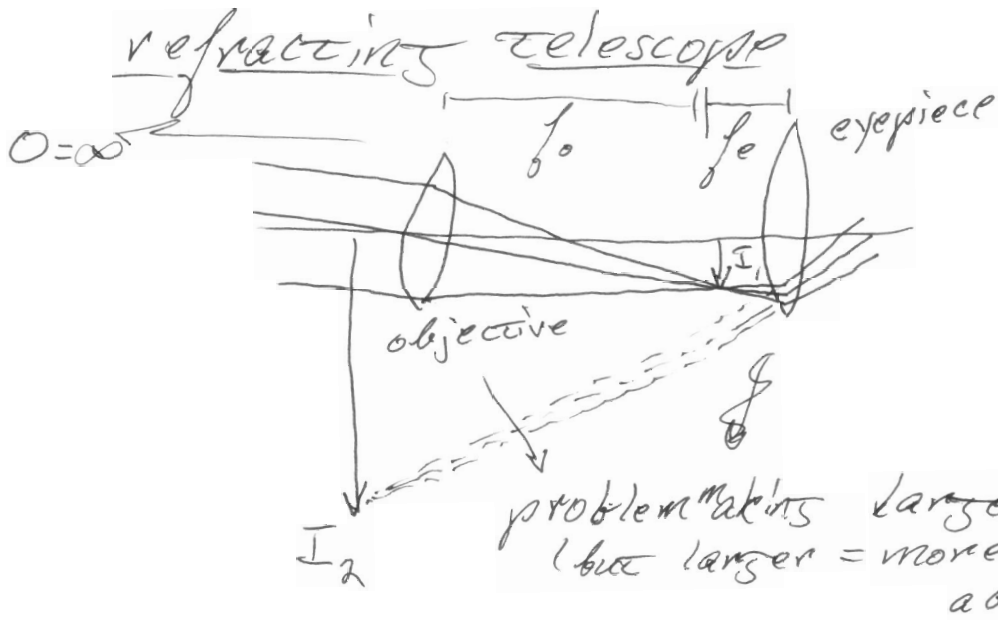 refracting telescope
O=∞
f₀
fₑ
eyepiece
I₁
objective
I₂
problem making large
(but larger = more